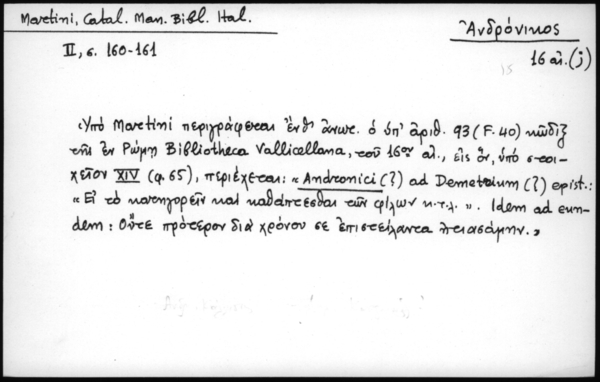 Martini, Catal. Man. Bibl. Ital.
II, σ. 160-161
Ἀνδρόνικος
16 αἰ. (j)
15
«Ὑπό Martini περιγράφεται ἔνθ' ἀνωτ. ὁ ὑπ' ἀριθ. 93 (F. 40) κῶδιξ
τῆς ἐν Ρώμῃ Bibliotheca Vallicellana, τοῦ 16ου αἰ., εἰς ὅν, ὑπό στοι-
χεῖον XIV (φ. 65), περιέχεται: «Andronici (?) ad Demetrium (?) epist.:
«Εἰ τὸ κατηγορεῖν καὶ καθάπτεσθαι τῶν φίλων κ.τ.λ.». Idem ad eun-
dem: Οὔτε πρότερον διά χρόνου σε ἐπιστείλαντα